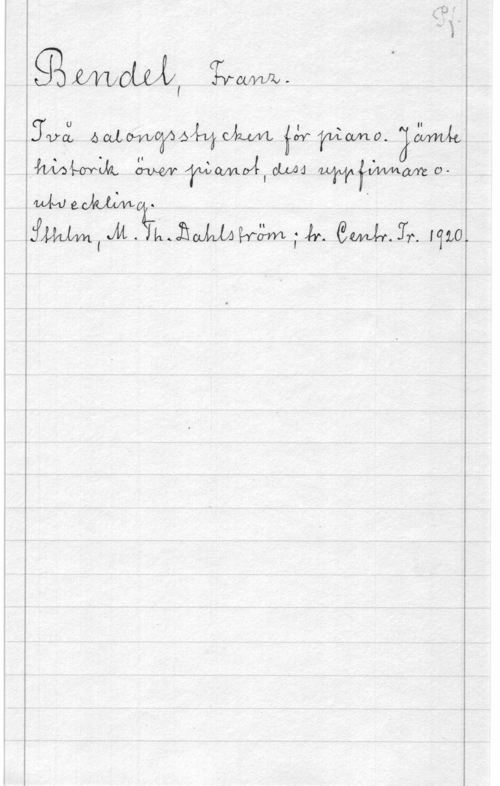 Pf.
Bendel, Franz.
Två salongsstycken för piano. Jämte
historik över pianot, dess uppfinnare o.
utveckling.
Sthlm, M. Th. Dahlström; tr. Centr. Tr. 1920.